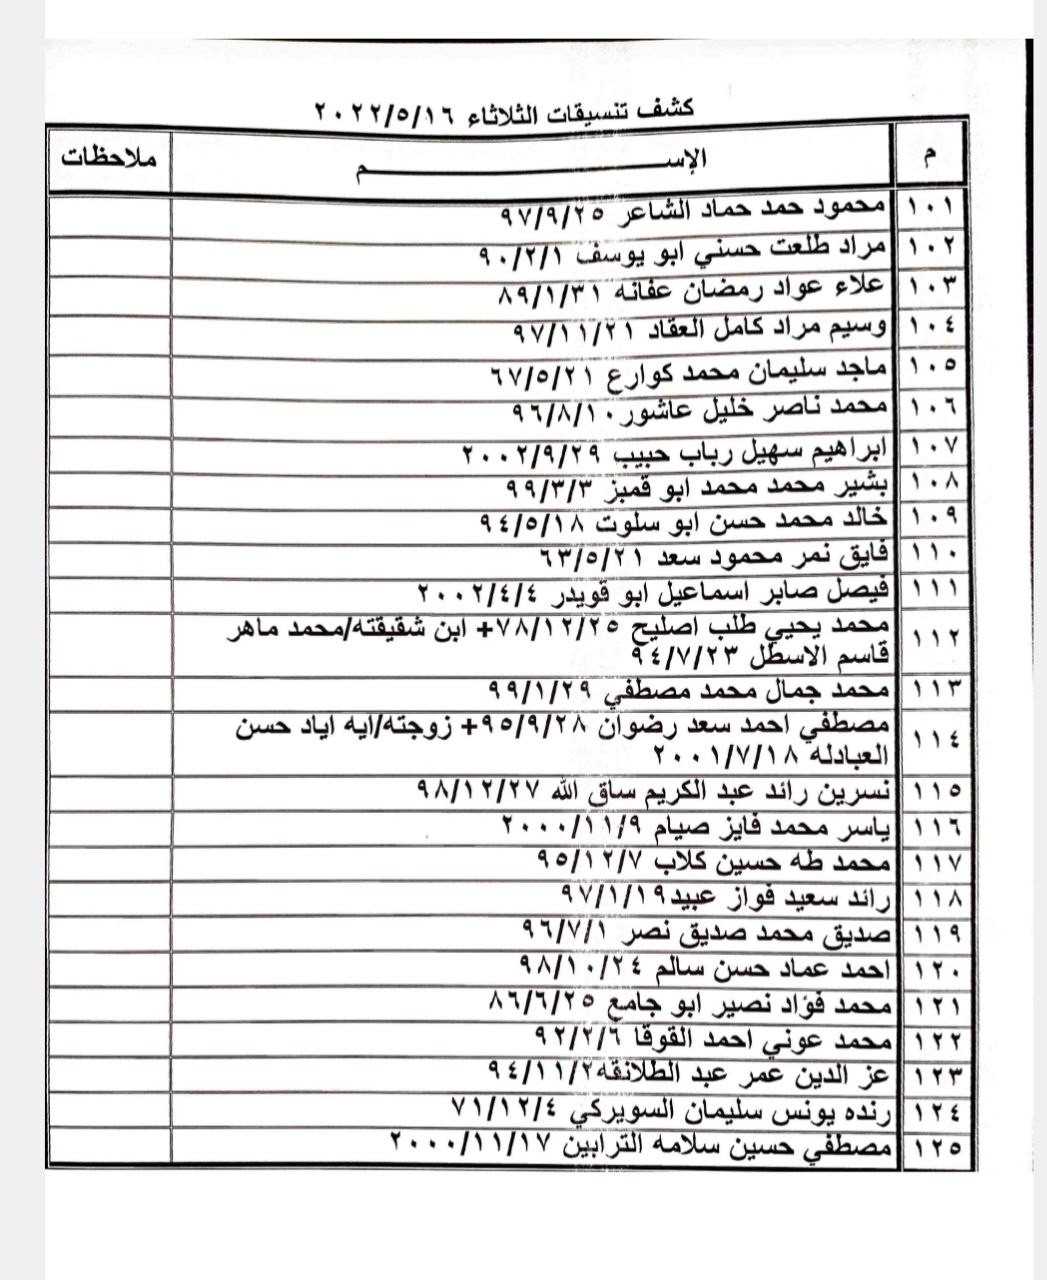 كشف تنسيقات الثلاثاء ٢٠٢٢/٥/١٦
م الإســـــــــــــم ملاحظات
١٠١ محمود حمد حماد الشاعر ٩٧/٩/٢٥
١٠٢ مراد طلعت حسني ابو يوسف ٩٠/٢/١
١٠٣ علاء عواد رمضان عفانه ٨٩/١/٣١
١٠٤ وسيم مراد كامل العقاد ٩٧/١١/٢١
١٠٥ ماجد سليمان محمد كوارع ٦٧/٥/٢١
١٠٦ محمد ناصر خليل عاشور ٩٦/٨/١٠
١٠٧ ابراهيم سهيل رباب حبيب ٢٠٠٢/٩/٢٩
١٠٨ بشير محمد محمد ابو قمبز ٩٩/٣/٣
١٠٩ خالد محمد حسن ابو سلوت ٩٤/٥/١٨
١١٠ فايق نمر محمود سعد ٦٣/٥/٢١
١١١ فيصل صابر اسماعيل ابو قويدر ٢٠٠٢/٤/٤
١١٢ محمد يحيي طلب اصليح ٧٨/١٢/٢٥+ ابن شقيقته/محمد ماهر
قاسم الاسطل ٩٤/٧/٢٣
١١٣ محمد جمال محمد مصطفي ٩٩/١/٢٩
١١٤ مصطفي احمد سعد رضوان ٩٥/٩/٢٨+ زوجته/ايه اياد حسن
العبادله ٢٠٠١/٧/١٨
١١٥ نسرين رائد عبد الكريم ساق الله ٩٨/١٢/٢٧
١١٦ ياسر محمد فايز صيام ٢٠٠٠/١١/٩
١١٧ محمد طه حسين كلاب ٩٥/١٢/٧
١١٨ رائد سعيد فواز عبيد٩٧/١/١٩
١١٩ صديق محمد صديق نصر ٩٦/٧/١
١٢٠ احمد عماد حسن سالم ٩٨/١٠/٢٤
١٢١ محمد فؤاد نصير ابو جامع ٨٦/٦/٢٥
١٢٢ محمد عوني احمد القوقا ٩٢/٢/٦
١٢٣ عز الدين عمر عبد الطلانقه٩٤/١١/٢
١٢٤ رنده يونس سليمان السويركي ٧١/١٢/٤
١٢٥ مصطفي حسين سلامه الترابين ٢٠٠٠/١١/١٧